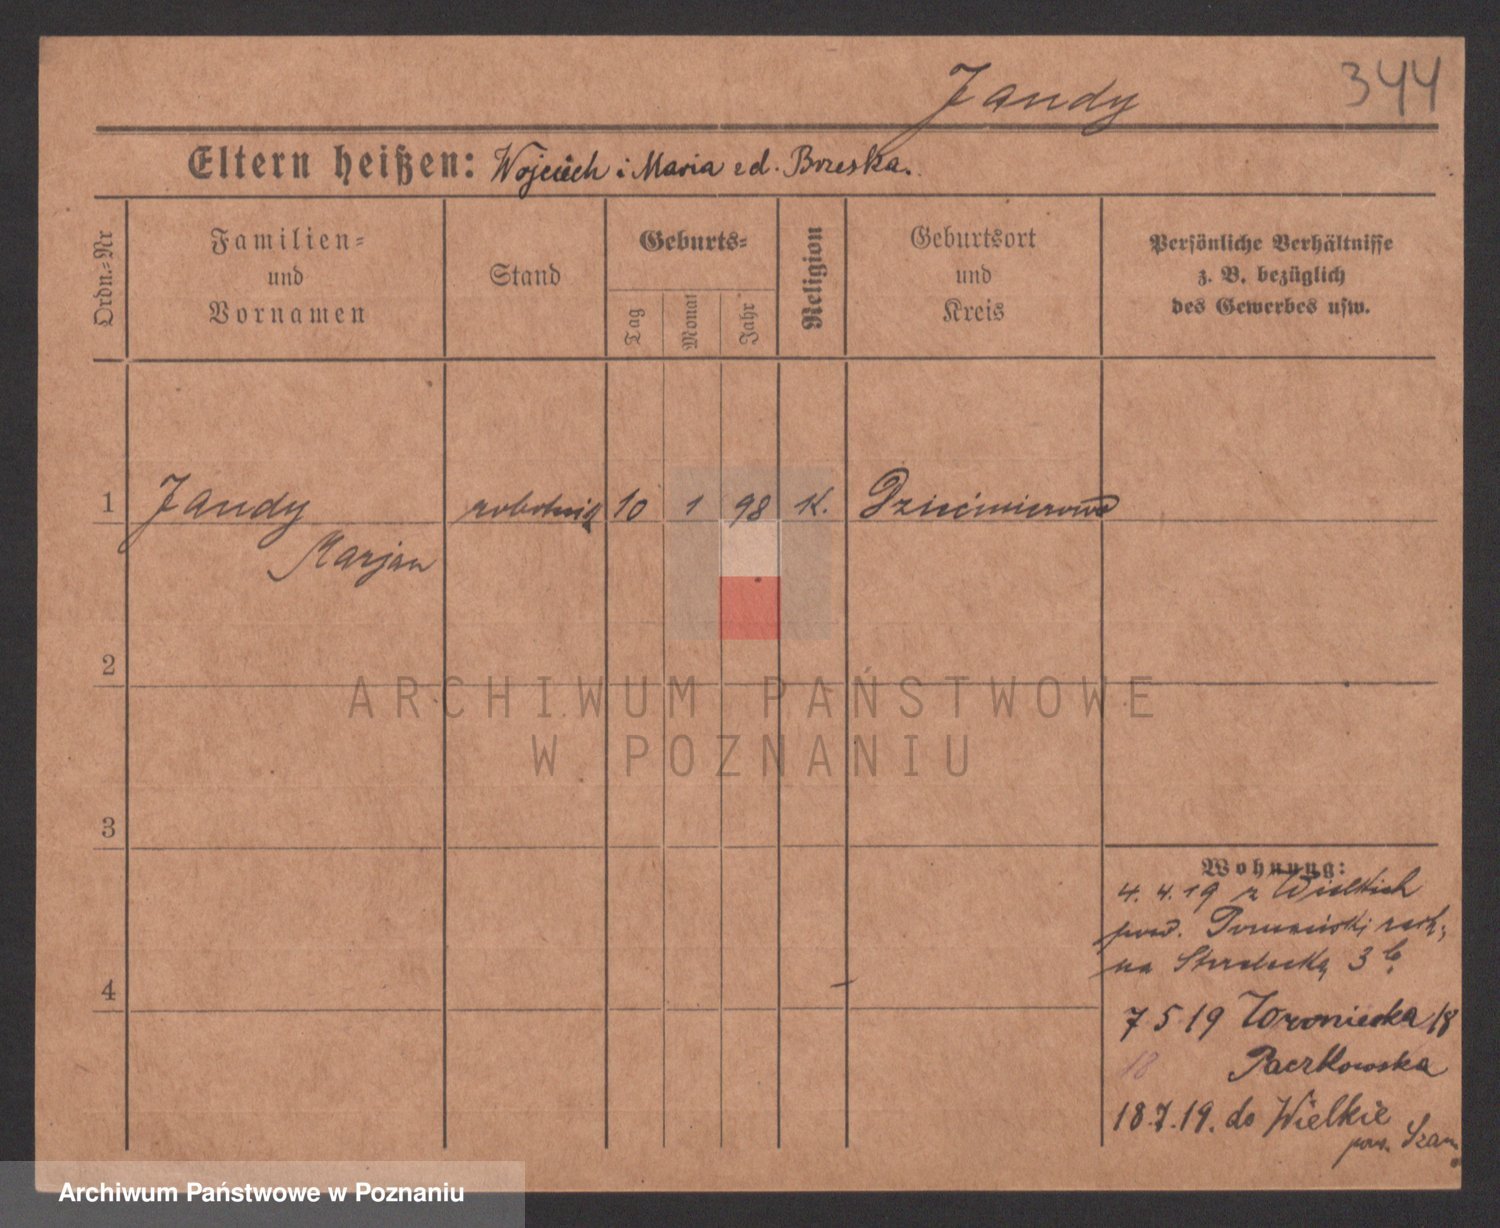 Jandy
344
Eltern heißen: Wojciech i Maria zd. Brzeska.
Ordn.-Nr
Familien-
und
Vornamen
Stand
Geburts-
Tag
Monat
Jahr
Religion
Geburtsort
und
Kreis
Persönliche Verhältnisse
z. B. bezüglich
des Gewerbes usw.
1 Jandy robotnik 10 1 98 K. Dziećmierowo
Marjan
2
ARCHIWUM PAŃSTWOWE
W POZNANIU
3
Wohnung:
4. 4. 19 z Wielkich
pow. Poznański
na 3
4
7 5 19 Woroniecka 18
18 Paczkowska
18.7.19. do Wielkie
pow. Szam
Archiwum Państwowe w Poznaniu